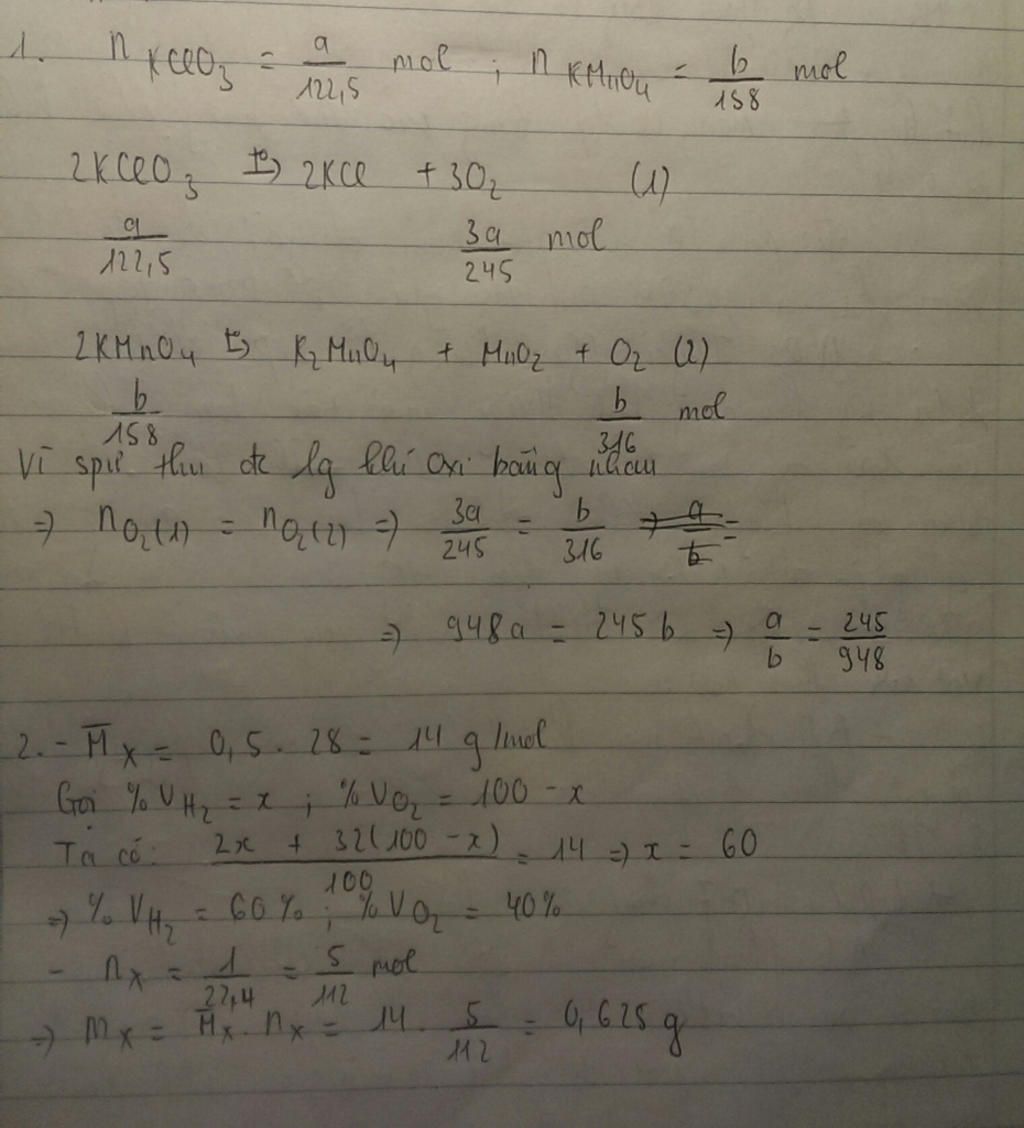 1. n KClO3 = a/122,5 mol ; n KMnO4 = b/158 mol
2KClO3 t°→ 2KCl + 3O2 (1)
a/122,5 3a/245 mol
2KMnO4 t°→ K2MnO4 + MnO2 + O2 (2)
b/158 b/316 mol
Vì spư thu đc lg khí oxi bằng nhau
=> nO2(1) = nO2(2) => 3a/245 = b/316 => a/b =
=> 948a = 245b => a/b = 245/948
2. - M̄X = 0,5 . 28 = 14 g/mol
Gọi %VH2 = x ; %VO2 = 100 - x
Ta có: 2x + 32(100 - x)/100 = 14 => x = 60
=> %VH2 = 60% ; %VO2 = 40%
- nX = 1/22,4 = 5/112 mol
=> mX = M̄X . nX = 14 . 5/112 = 0,625 g